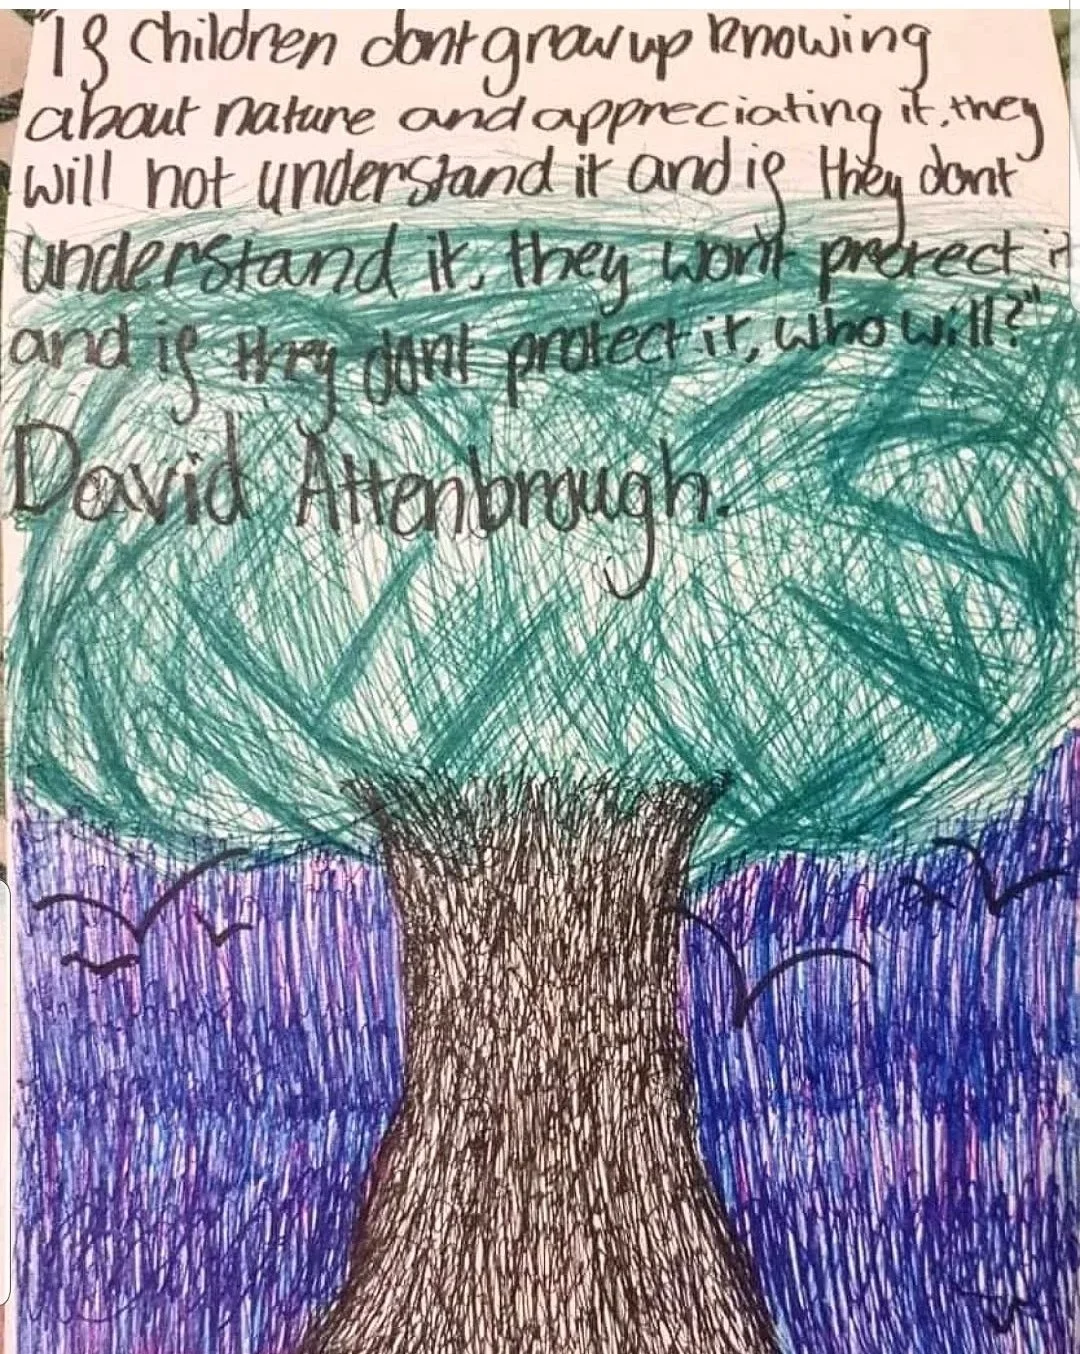 "If children dont grow up knowing
about nature and appreciating it, they
will not understand it and if they dont
understand it, they won't protect it
and if they dont protect it, who will?"
David Attenbrough.